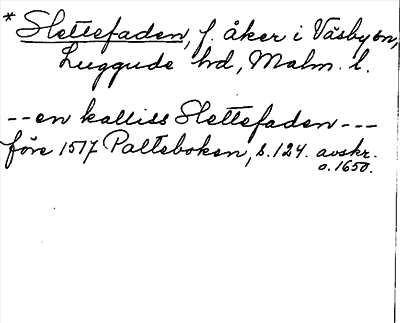 * Slettefaden, f. åker i Väsby sn,
Luggude hd, Malm. l.
-- en kalliss Slettefaden ---
före 1517 Palteboken, s. 124. avskr.
o. 1650.